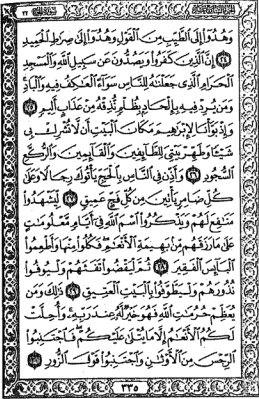 وَهُدُوٓا۟ إِلَى ٱلطَّيِّبِ مِنَ ٱلْقَوْلِ وَهُدُوٓا۟ إِلَىٰ صِرَٰطِ ٱلْحَمِيدِ
﴿٢٤﴾ إِنَّ ٱلَّذِينَ كَفَرُوا۟ وَيَصُدُّونَ عَن سَبِيلِ ٱللَّهِ وَٱلْمَسْجِدِ
ٱلْحَرَامِ ٱلَّذِى جَعَلْنَٰهُ لِلنَّاسِ سَوَآءً ٱلْعَٰكِفُ فِيهِ وَٱلْبَادِ
وَمَن يُرِدْ فِيهِ بِإِلْحَادٍۭ بِظُلْمٍ نُّذِقْهُ مِنْ عَذَابٍ أَلِيمٍ ﴿٢٥﴾
وَإِذْ بَوَّأْنَا لِإِبْرَٰهِيمَ مَكَانَ ٱلْبَيْتِ أَن لَّا تُشْرِكْ بِى
شَيْـًٔا وَطَهِّرْ بَيْتِىَ لِلطَّآئِفِينَ وَٱلْقَآئِمِينَ وَٱلرُّكَّعِ
ٱلسُّجُودِ ﴿٢٦﴾ وَأَذِّن فِى ٱلنَّاسِ بِٱلْحَجِّ يَأْتُوكَ رِجَالًا وَعَلَىٰ
كُلِّ ضَامِرٍ يَأْتِينَ مِن كُلِّ فَجٍّ عَمِيقٍ ﴿٢٧﴾ لِّيَشْهَدُوا۟
مَنَٰفِعَ لَهُمْ وَيَذْكُرُوا۟ ٱسْمَ ٱللَّهِ فِىٓ أَيَّامٍ مَّعْلُومَٰتٍ
عَلَىٰ مَا رَزَقَهُم مِّنۢ بَهِيمَةِ ٱلْأَنْعَٰمِ فَكُلُوا۟ مِنْهَا وَأَطْعِمُوا۟
ٱلْبَآئِسَ ٱلْفَقِيرَ ﴿٢٨﴾ ثُمَّ لْيَقْضُوا۟ تَفَثَهُمْ وَلْيُوفُوا۟
نُذُورَهُمْ وَلْيَطَّوَّفُوا۟ بِٱلْبَيْتِ ٱلْعَتِيقِ ﴿٢٩﴾ ذَٰلِكَ وَمَن
يُعَظِّمْ حُرُمَٰتِ ٱللَّهِ فَهُوَ خَيْرٌ لَّهُۥ عِندَ رَبِّهِۦ وَأُحِلَّتْ
لَكُمُ ٱلْأَنْعَٰمُ إِلَّا مَا يُتْلَىٰ عَلَيْكُمْ فَٱجْتَنِبُوا۟
ٱلرِّجْسَ مِنَ ٱلْأَوْثَٰنِ وَٱجْتَنِبُوا۟ قَوْلَ ٱلزُّورِ ﴿٣٠﴾
٣٣٥